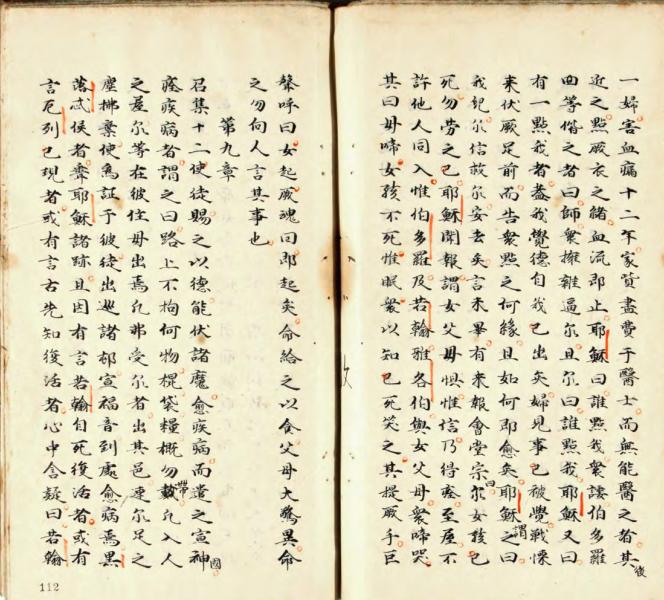 一婦害血痛十二年家貲盡費于醫士而無能醫之者其後
近之點厥衣之繸血流即止耶穌曰誰點我衆諉伯多羅
曰等偕之者曰師衆擁雜逼尔且尔曰誰點我耶穌又曰
有一點我者葢我覺德自我已出矣婦見事已被覺戰慄
来伏厥足前而告衆點之何緣且如何即愈矣耶穌謂之曰
我兒尔信救尔安去矣言未畢有来報會堂宗曰尔女孩已
死勿勞之已耶穌聞報謂女父毋惧惟信乃得痊至屋不
許他人同入惟伯多羅及若翰雅各伯與女父母衆啼哭
其曰毋啼女孩不死惟眠衆以知已死笑之其授厥手巨
聲呼曰女起厥魂回即起矣命給之以食父母大驚異命
之勿向人言其事也
第九章
召集十二使徒賜之以德能伏諸魔愈疾病而遣之宣神國
痊疾病者謂之曰路上不拘何物棍袋糧概勿帶凡入人
之屋尔等在彼住毋出焉凡弗受尔者出其邑連尔足之
塵拂棄使為証于彼徒出廵諸郁宣福音到處愈病焉黑
落忒侯者聞耶穌諸跡且因有言若翰自死復活者或有
言厄列已現者或有言古先知復活者心中含疑曰若翰
112